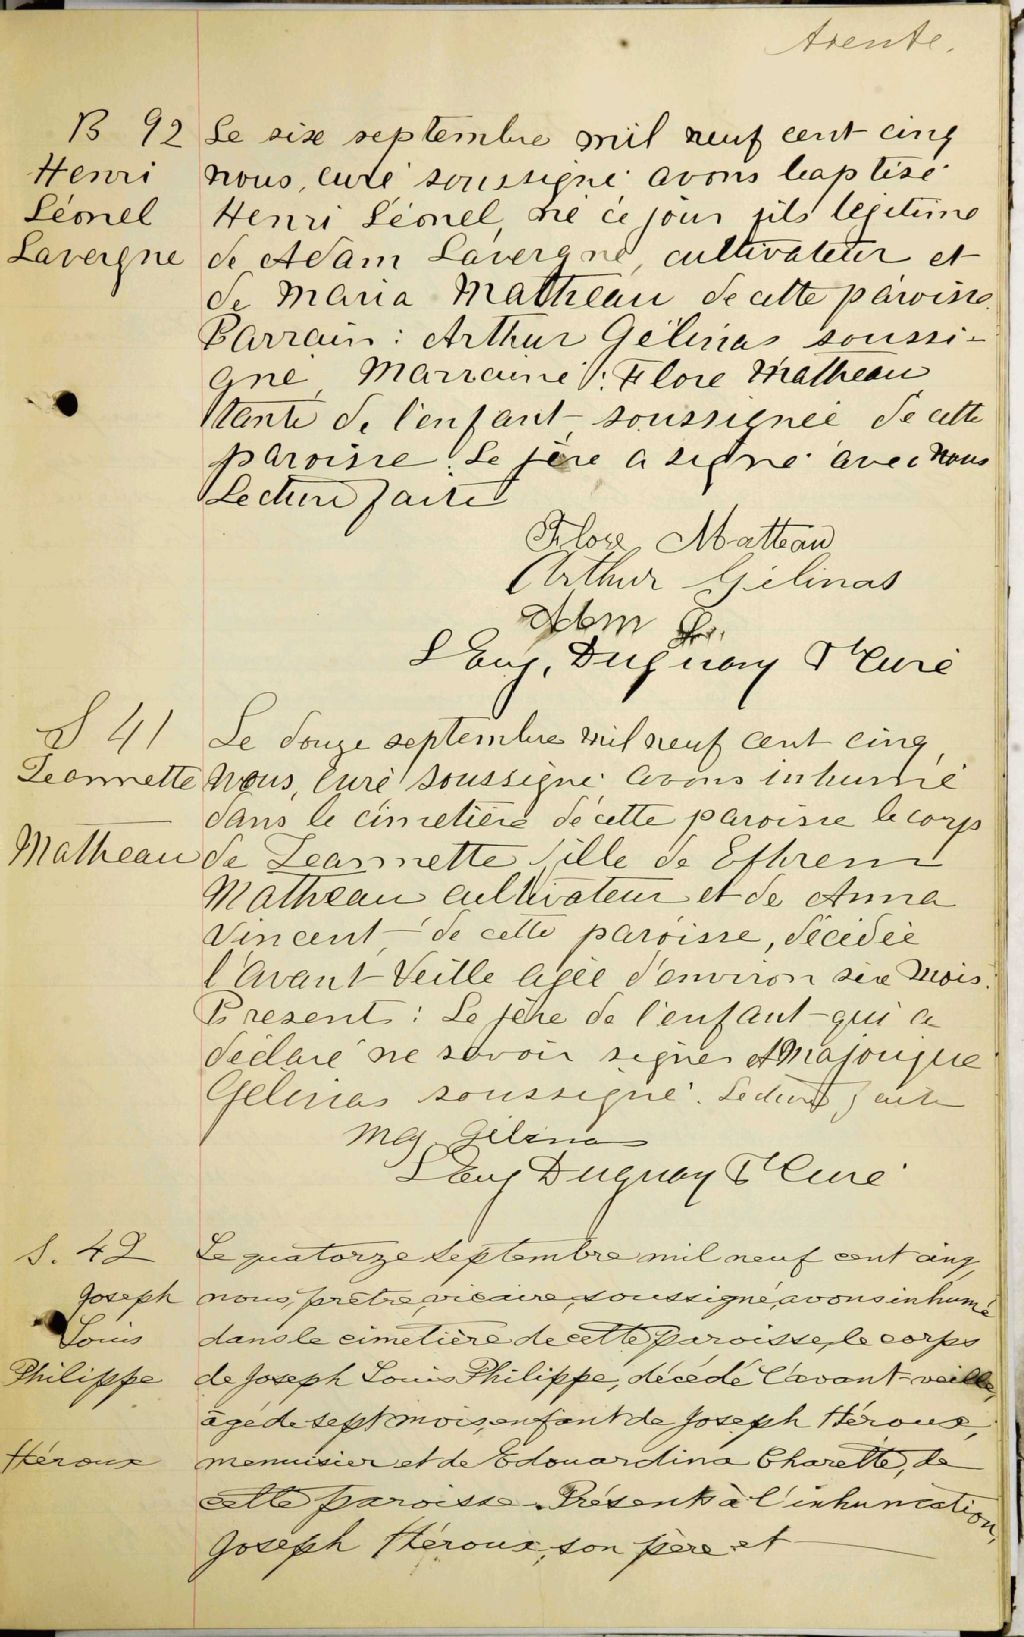 trente.
B 92
Henri
Léonel
Lavergne
Le six septembre mil neuf cent cinq
nous, curé soussigné avons baptisé
Henri Léonel, né ce jour fils légitime
de Adam Lavergne, cultivateur et
de Maria Matheau de cette paroisse.
Parrain : Arthur Gélinas soussi-
gné, Marraine : Flore Matheau
tante de l'enfant soussignée de cette
paroisse. Le père a signé avec nous
Lecture faite
Flore Matteau
Arthur Gélinas
Adem
L Eug. Duguay Ptre Curé
S 41
Jeannette
Matheau
Le douze septembre mil neuf cent cinq,
Nous, curé soussigné avons inhumé
dans le cimetière de cette paroisse le corps
de Jeannette fille de Ephrem
Matheau cultivateur et de Anna
Vincent de cette paroisse, décédée
l'avant veille agée d'environ six mois.
Présents : Le père de l'enfant qui a
déclaré ne savoir signer & Majorique
Gélinas soussigné. Lecture faite
Maj. Gélinas
L Eug Duguay Ptre Curé
S. 42
Joseph
Louis
Philippe
Héroux
Le quatorze septembre mil neuf cent cinq,
nous, prêtre, vicaire, soussigné, avons inhumé
dans le cimetière de cette paroisse, le corps
de Joseph Louis Philippe, décédé l'avant-veille,
âgé de sept mois, enfant de Joseph Héroux,
menuisier et de Edouardina Charette, de
cette paroisse. Présents à l'inhumation,
Joseph Héroux, son père et